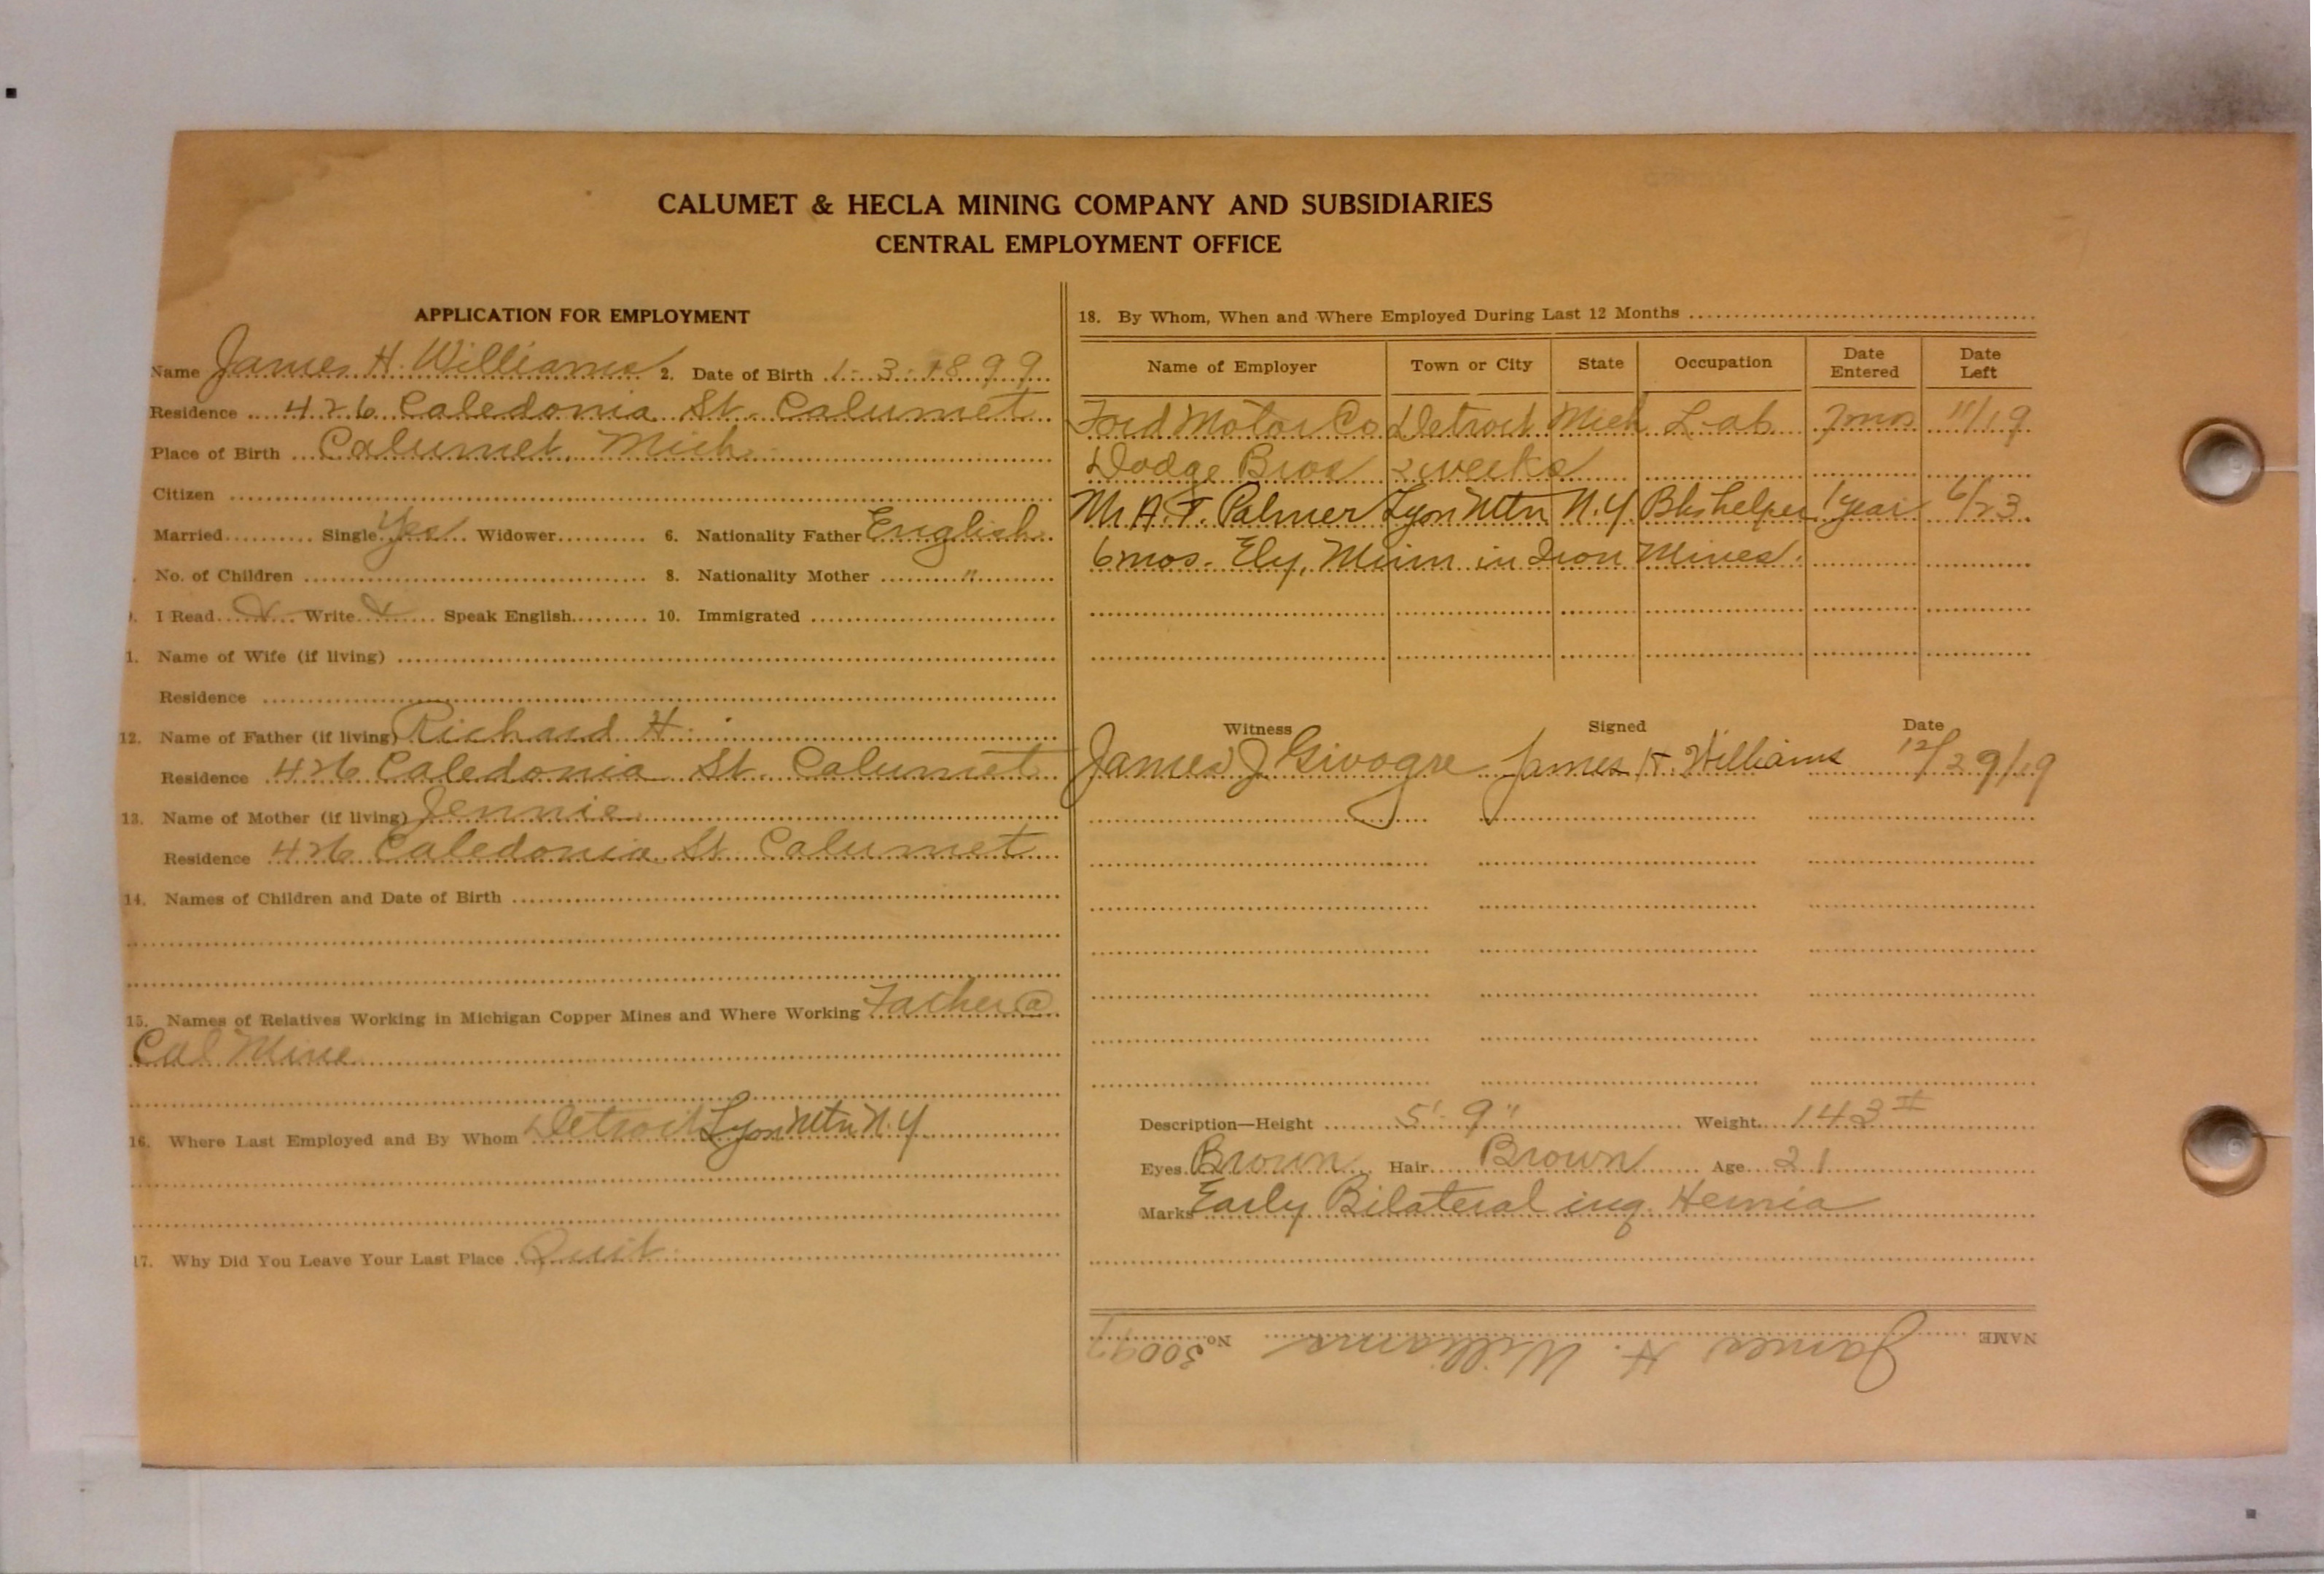 CALUMET & HECLA MINING COMPANY AND SUBSIDIARIES
CENTRAL EMPLOYMENT OFFICE
APPLICATION FOR EMPLOYMENT
Name James H. Williams 2. Date of Birth 1-3-1899
Residence 426 Caledonia St. Calumet
Place of Birth Calumet, Mich
Citizen
Married Single Yes Widower 6. Nationality Father English
No. of Children 8. Nationality Mother "
I Read X Write X Speak English 10. Immigrated
1. Name of Wife (if living)
Residence
12. Name of Father (if living) Richard H.
Residence 426 Caledonia St. Calumet
13. Name of Mother (if living) Jennie
Residence 426 Caledonia St. Calumet
14. Names of Children and Date of Birth
15. Names of Relatives Working in Michigan Copper Mines and Where Working Father @
Cal Mine
16. Where Last Employed and By Whom Detroit Lyon Mtn N.Y.
17. Why Did You Leave Your Last Place Quit
18. By Whom, When and Where Employed During Last 12 Months
Name of Employer Town or City State Occupation Date Entered Date Left
Ford Motor Co Detroit Mich Lab 7mos 11/19
Dodge Bros 2 weeks
Mr A. F. Palmer Lyon Mtn N.Y. Blkshelper 1 year 6/23
6 mos. Ely, Minn in Iron Mines.
Witness Signed Date
James J Givogre James H. Williams 12/29/19
Description—Height 5'-9" Weight 143 #
Eyes Brown Hair Brown Age 21
Marks Early Bilateral ing. Hernia
NAME James H. Williams No.